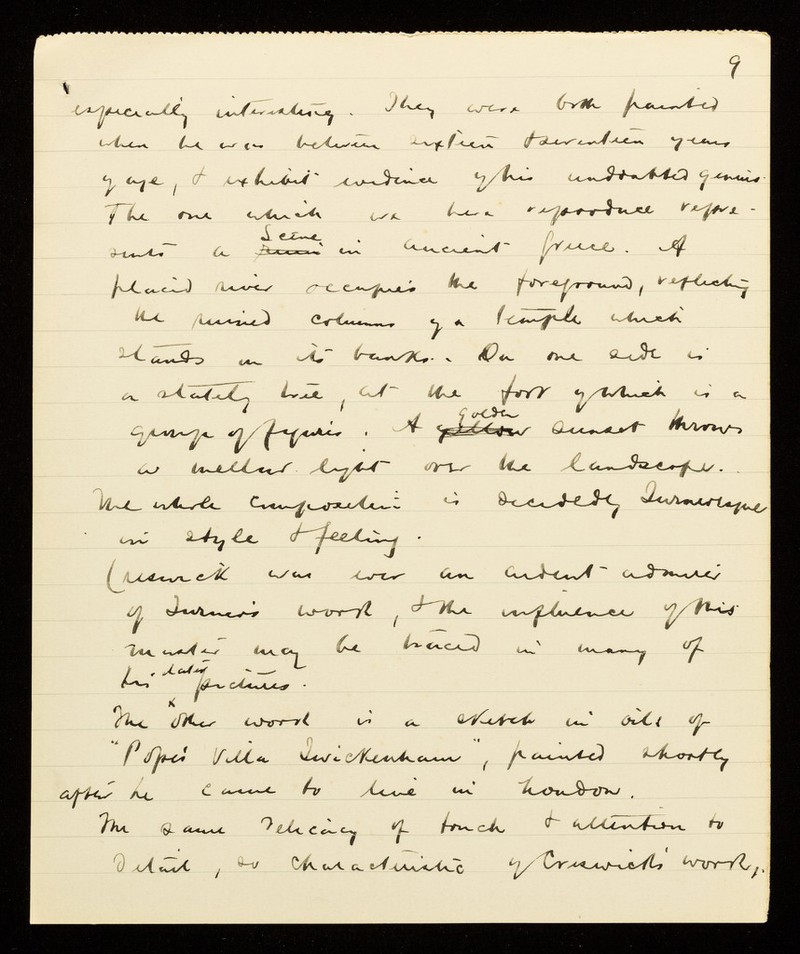 9
especially interesting. They were both painted
when he was between sixteen & seventeen years
of age, & exhibit evidence of his undoubted genius.
The one which we here reproduce repre-
Scene
sents a ruin in ancient Greece. A
placid river occupies the foreground, reflecting
the ruined columns of a temple which
stands on its banks. On one side is
a stately tree, at the foot of which is a
golden
group of figures. A yellow sunset throws
a mellow light over the landscape.
The whole composition is decidedly Turneresque
in style & feeling.
Creswick was ever an ardent admirer
of Turner's work, & the influence of this
master may be traced in many of
later
his pictures.
The other work is a sketch in oils of
"Pope's Villa Twickenham", painted shortly
after he came to live in London.
The same delicacy of touch & attention to
detail, so characteristic of Creswick's work,